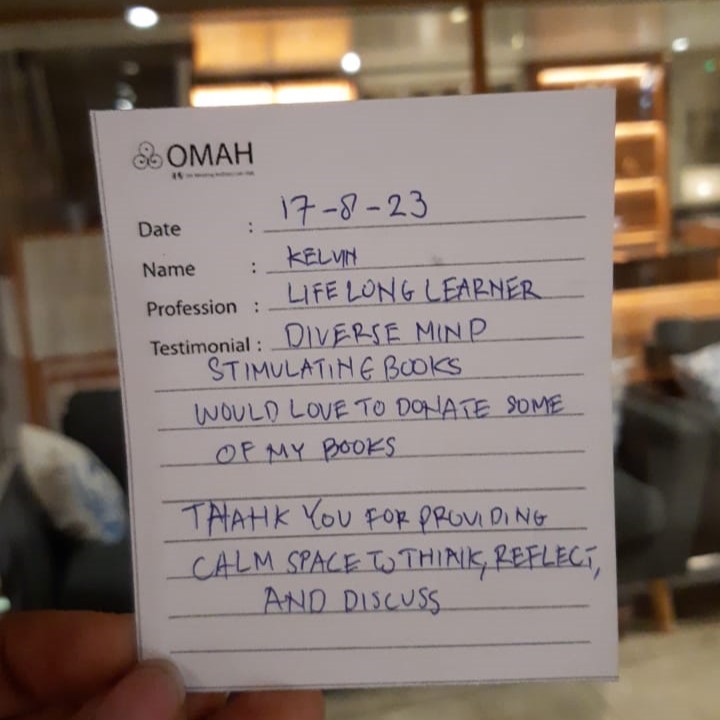 OMAH
Date : 17-8-23
Name : KELVIN
Profession : LIFE LONG LEARNER
Testimonial : DIVERSE MIND
STIMULATING BOOKS
WOULD LOVE TO DONATE SOME
OF MY BOOKS
THANK YOU FOR PROVIDING
CALM SPACE TO THINK, REFLECT,
AND DISCUSS